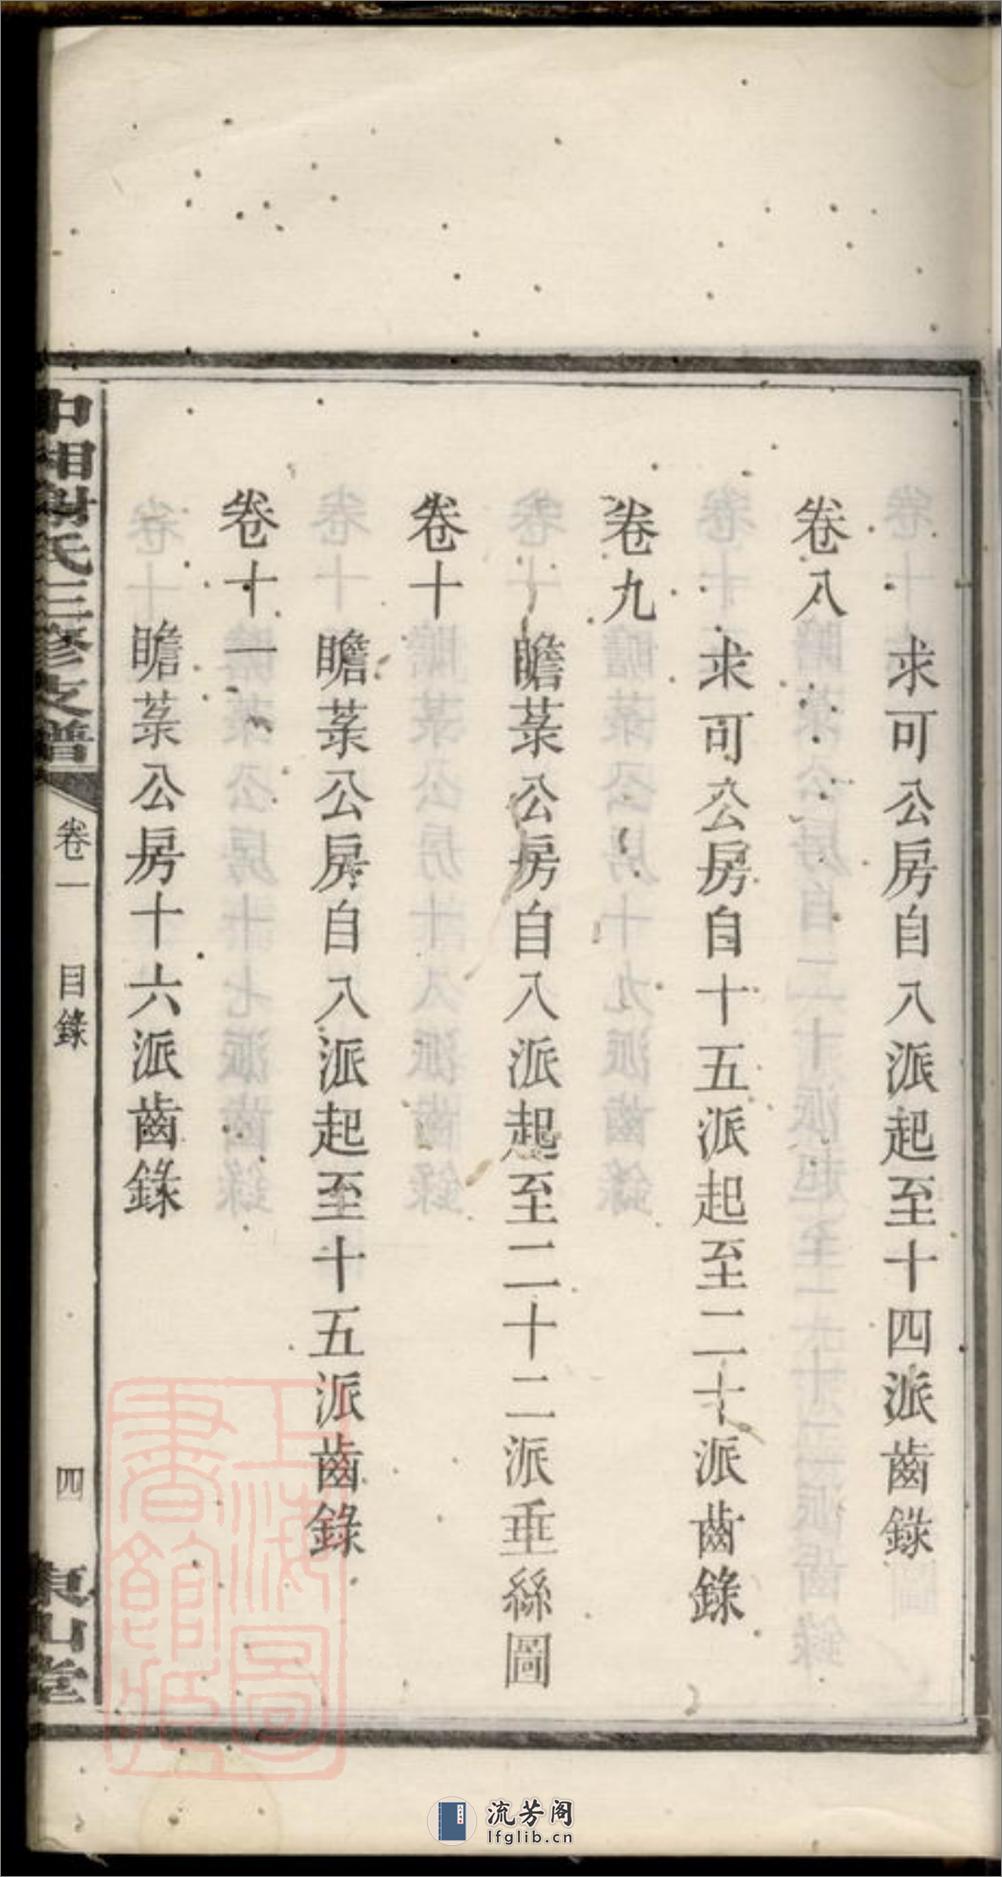 求可公房自八派起至十四派齒錄
卷八
求可公房自十五派起至二十派齒錄
卷九
瞻菉公房自八派起至二十二派垂絲圖
卷十
瞻菉公房自八派起至十五派齒錄
卷十一
瞻菉公房十六派齒錄
中湘謝氏三修支譜
卷一
目錄
四
東山堂
上海圖書館藏
流芳阁
lfglib.cn